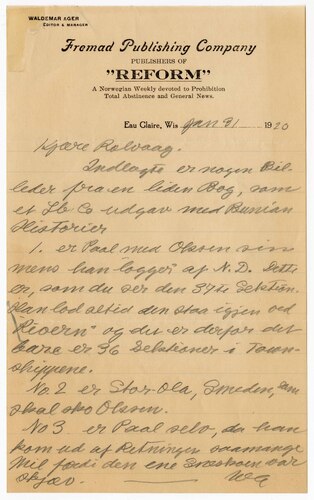 WALDEMAR AGER
EDITOR & MANAGER
Fremad Publishing Company
PUBLISHERS OF
"REFORM"
A Norwegian Weekly devoted to Prohibition
Total Abstinence and General News.
Eau Claire, Wis Jan 31 1920
Kjære Rolvaag.
Indlagte er nogen Bil-
leder fra en liden Bog, som
et Lb Co udgav med Bunian
Historier
1. er Paal med Olsen sin
mens han logget af N.D. Dette
er, som du ser den 37te Sektion.
Han lod altid den staa igjen ved
"Reveren" og det er derfor det
bare er 36 Sektioner i Town-
shippene.
No 2 er Stor-Ola, Smeden, som
skal sko Olsen.
No 3 er Paal selv, da han
kom ud af Retningen saamange
Mil fordi den ene
skjæv. WA